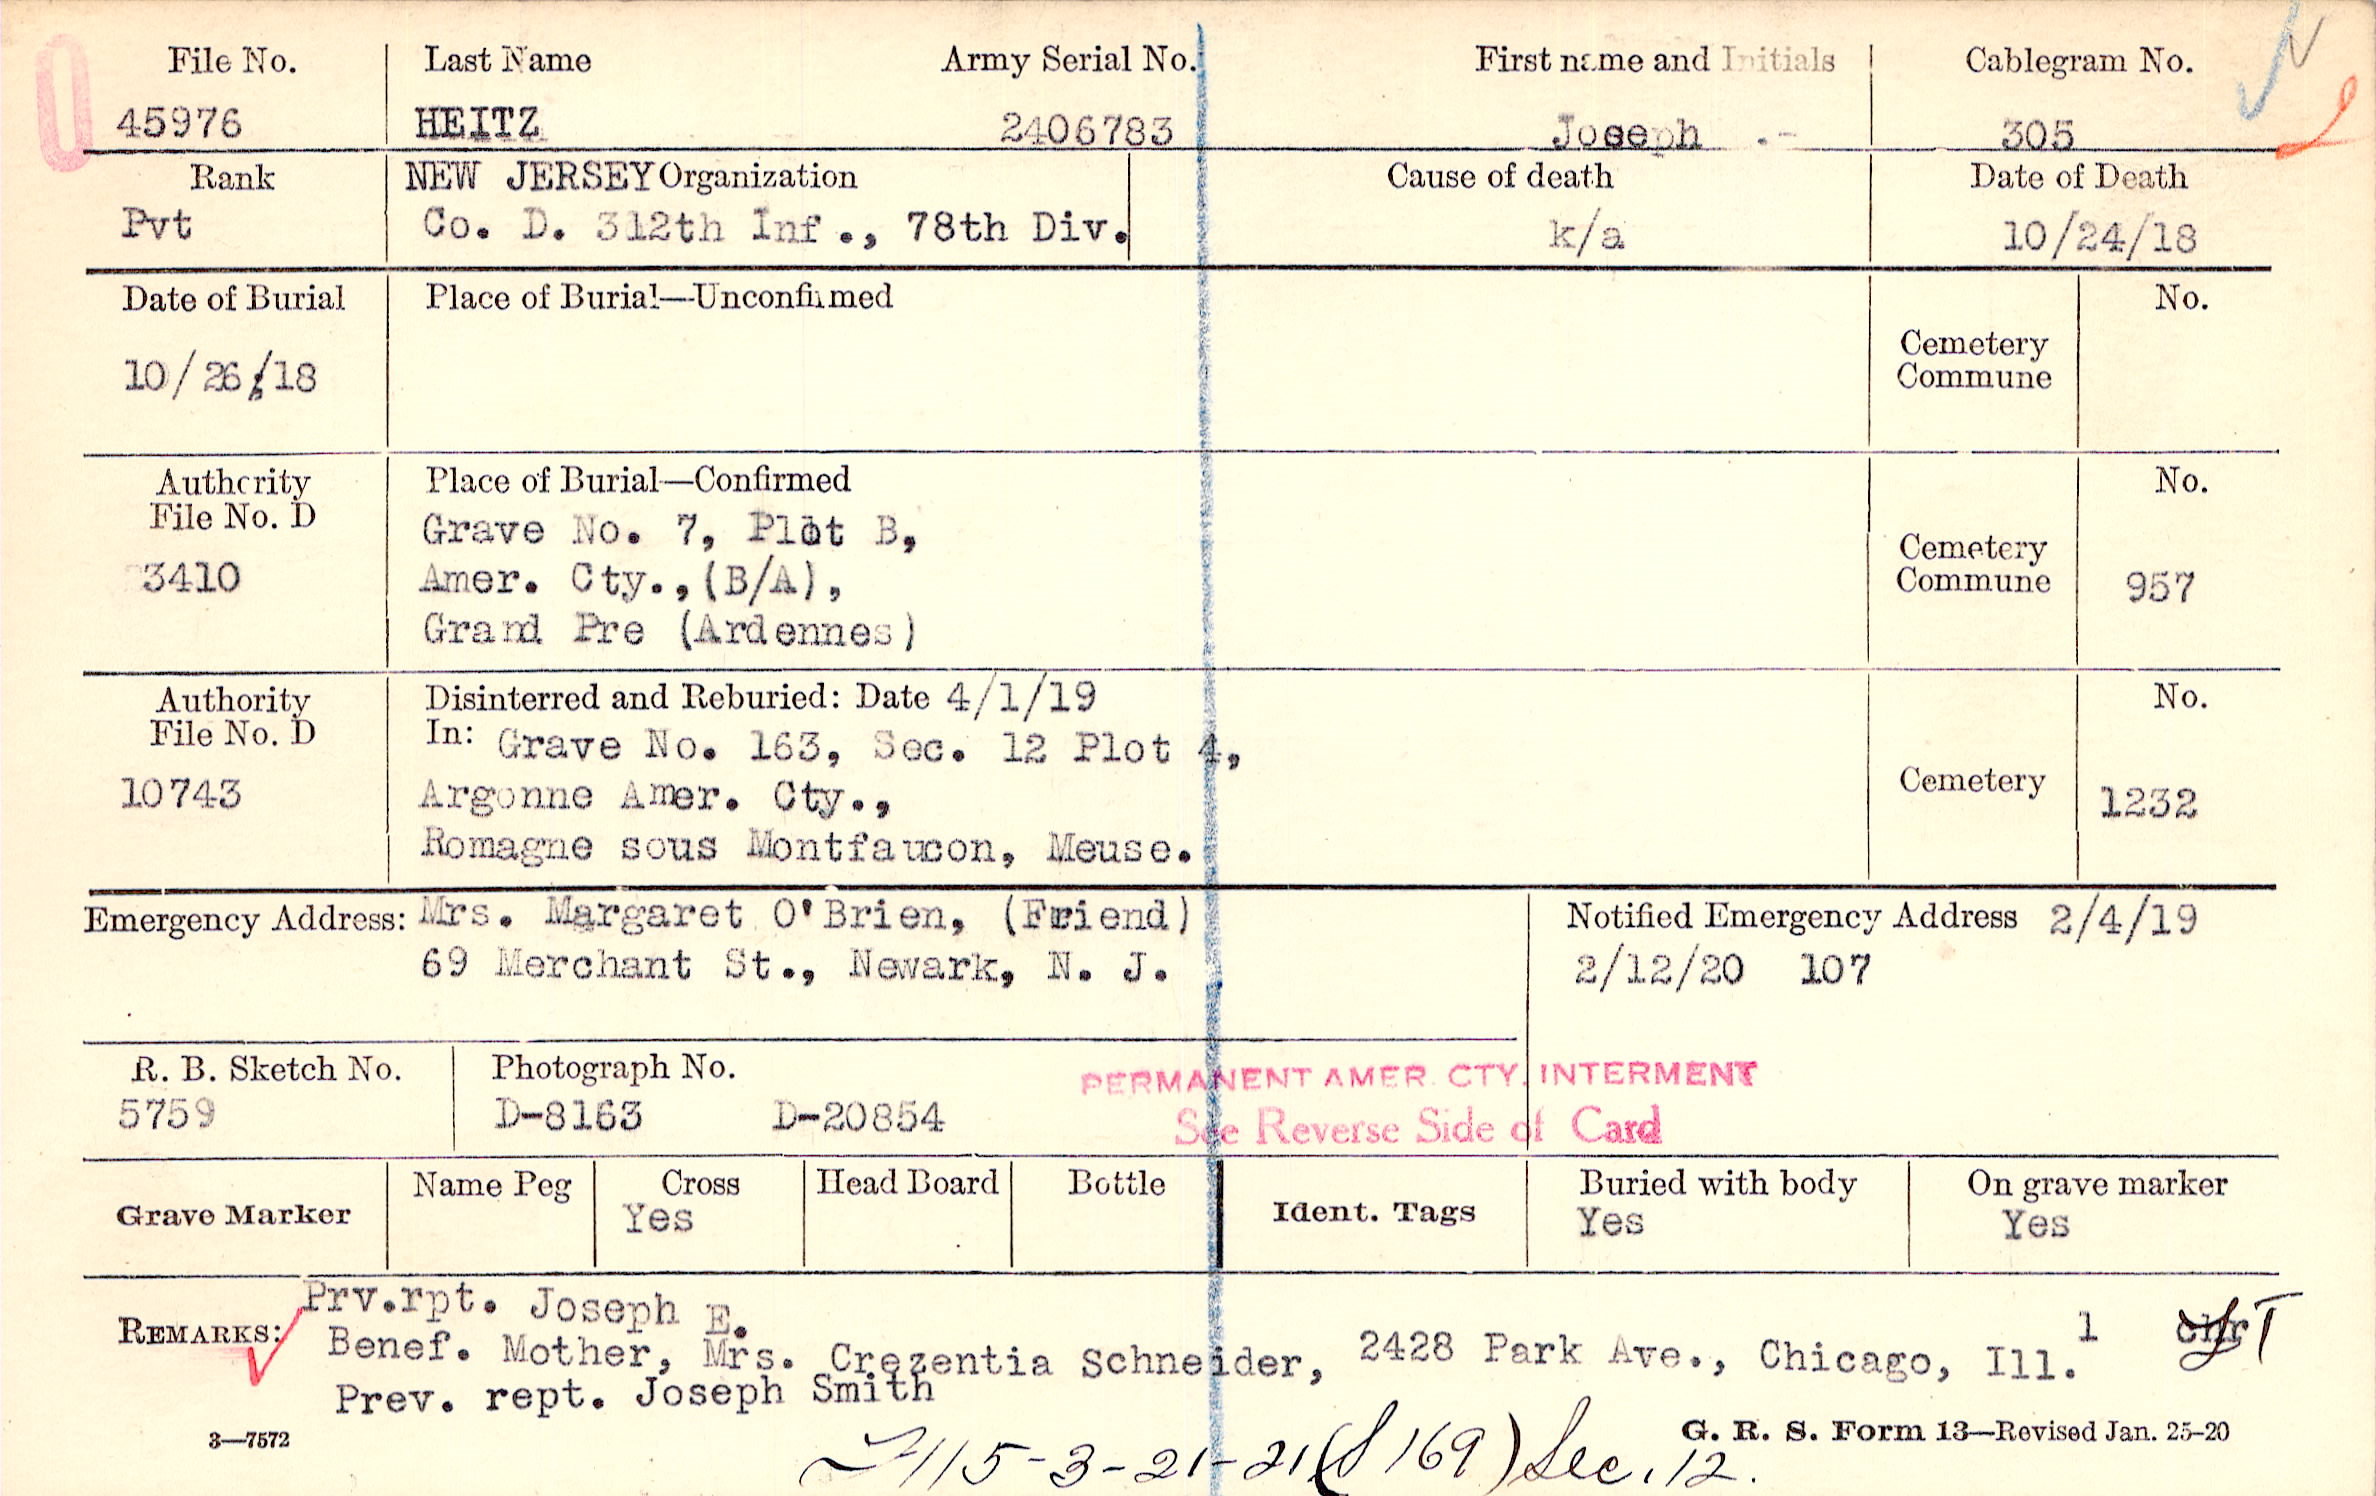 File No. Last Name Army Serial No. First name and Initials Cablegram No.
45976 HEITZ 2406783 Joseph .- 305
Rank NEW JERSEY Organization Cause of death Date of Death
Pvt Co. D. 312th Inf., 78th Div. k/a 10/24/18
Date of Burial Place of Burial—Unconfirmed No.
10/26/18 Cemetery
Commune
Authority Place of Burial—Confirmed No.
File No. D Grave No. 7, Plot B,
3410 Amer. Cty.,(B/A), Cemetery
Commune 957
Grand Pre (Ardennes)
Authority Disinterred and Reburied: Date 4/1/19 No.
File No. D In: Grave No. 163, Sec. 12 Plot 4,
10743 Argonne Amer. Cty., Cemetery 1232
Romagne sous Montfaucon, Meuse.
Emergency Address: Mrs. Margaret O'Brien, (Friend) Notified Emergency Address 2/4/19
69 Merchant St., Newark, N. J. 2/12/20 107
R. B. Sketch No. Photograph No. PERMANENT AMER. CTY. INTERMENT
5759 D-8163 D-20854 See Reverse Side of Card
Grave Marker Name Peg Cross Head Board Bottle Ident. Tags Buried with body On grave marker
Yes Yes Yes
REMARKS: Prv.rpt. Joseph E.
Benef. Mother, Mrs. Crezentia Schneider, 2428 Park Ave., Chicago, Ill. 1
Prev. rept. Joseph Smith
3—7572 G. R. S. Form 13—Revised Jan. 25-20
115-3-21-21 169) Sec. 12.